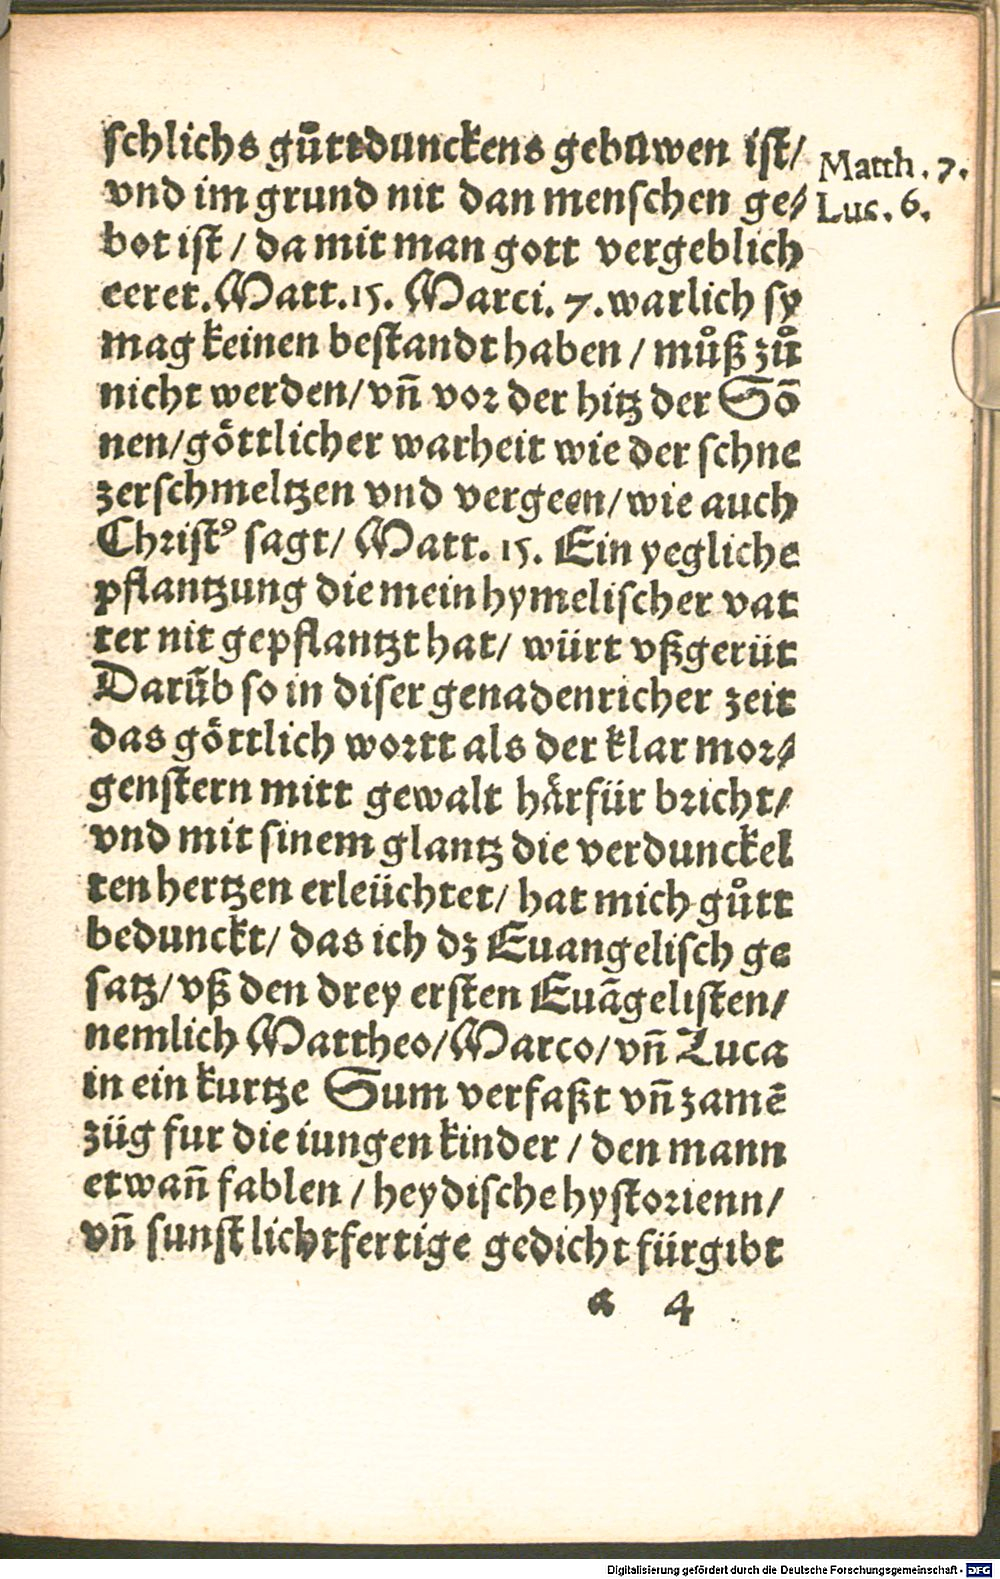 schlichs gůttdunckens gebuwen ist/
vnd im grund nit dan menschen ge⸗
bot ist / da mit man gott vergeblich
eeret. Matt. 15. Marci. 7. warlich sy
mag keinen bestandt haben / můß zů
nicht werden/ vn̄ vor der hitz der Sō
nen/ göttlicher warheit wie der schne
zerschmeltzen vnd vergeen/ wie auch
Christꝰ sagt/ Matt. 15. Ein yegliche
pflantzung die mein hymelischer vat
ter nit gepflantzt hat/ würt vßgerüt
Darūb so in diser genadenricher zeit
das göttlich wortt als der klar mor⸗
genstern mitt gewalt härfür bricht/
vnd mit sinem glantz die verdunckel
ten hertzen erleüchtet/ hat mich gůtt
bedunckt/ das ich dz Euangelisch ge
satz/ vß den drey ersten Euāgelisten/
nemlich Mattheo/ Marco/ vn̄ Luca
in ein kurtze Sum verfaßt vn̄ zamē
züg fur die iungen kinder / den mann
etwan̄ fablen / heydische hystorienn/
vn̄ sunst lichtfertige gedicht fürgibt
a 4
Matth. 7.
Luc. 6.
Digitalisierung gefördert durch die Deutsche Forschungsgemeinschaft - DFG